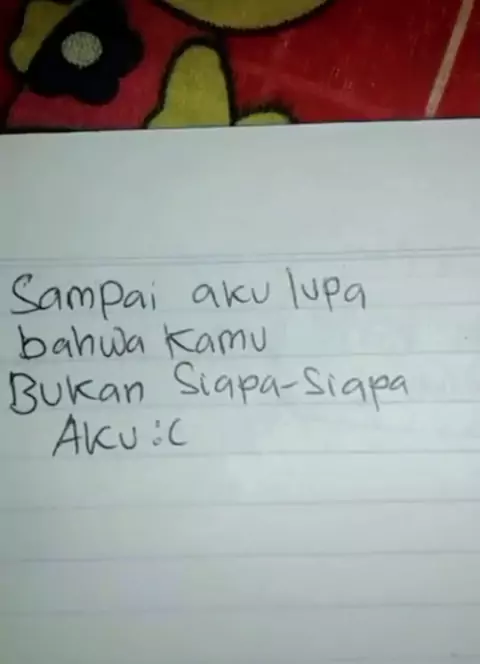 Sampai aku lupa
bahwa kamu
Bukan Siapa-Siapa
Aku :C